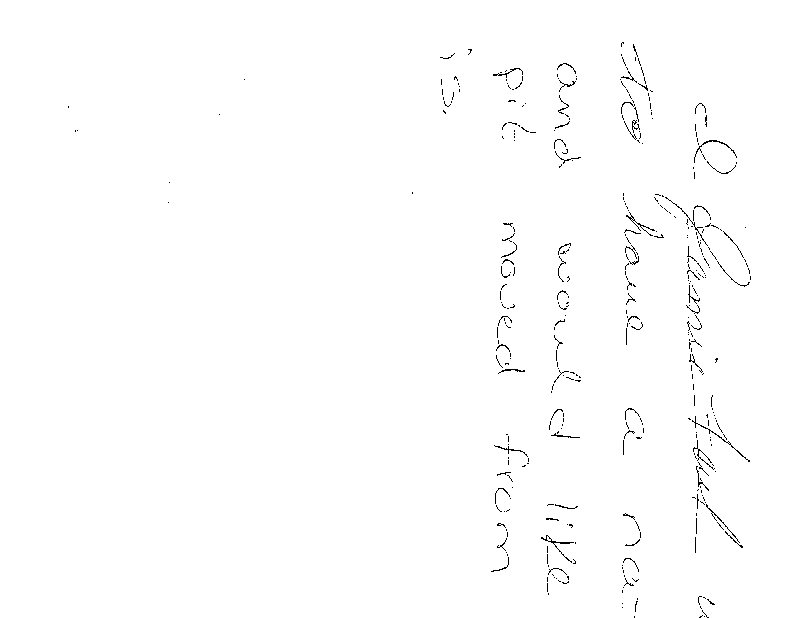 I Jamie Faul
to have a na
and would like
pit moved from
is.